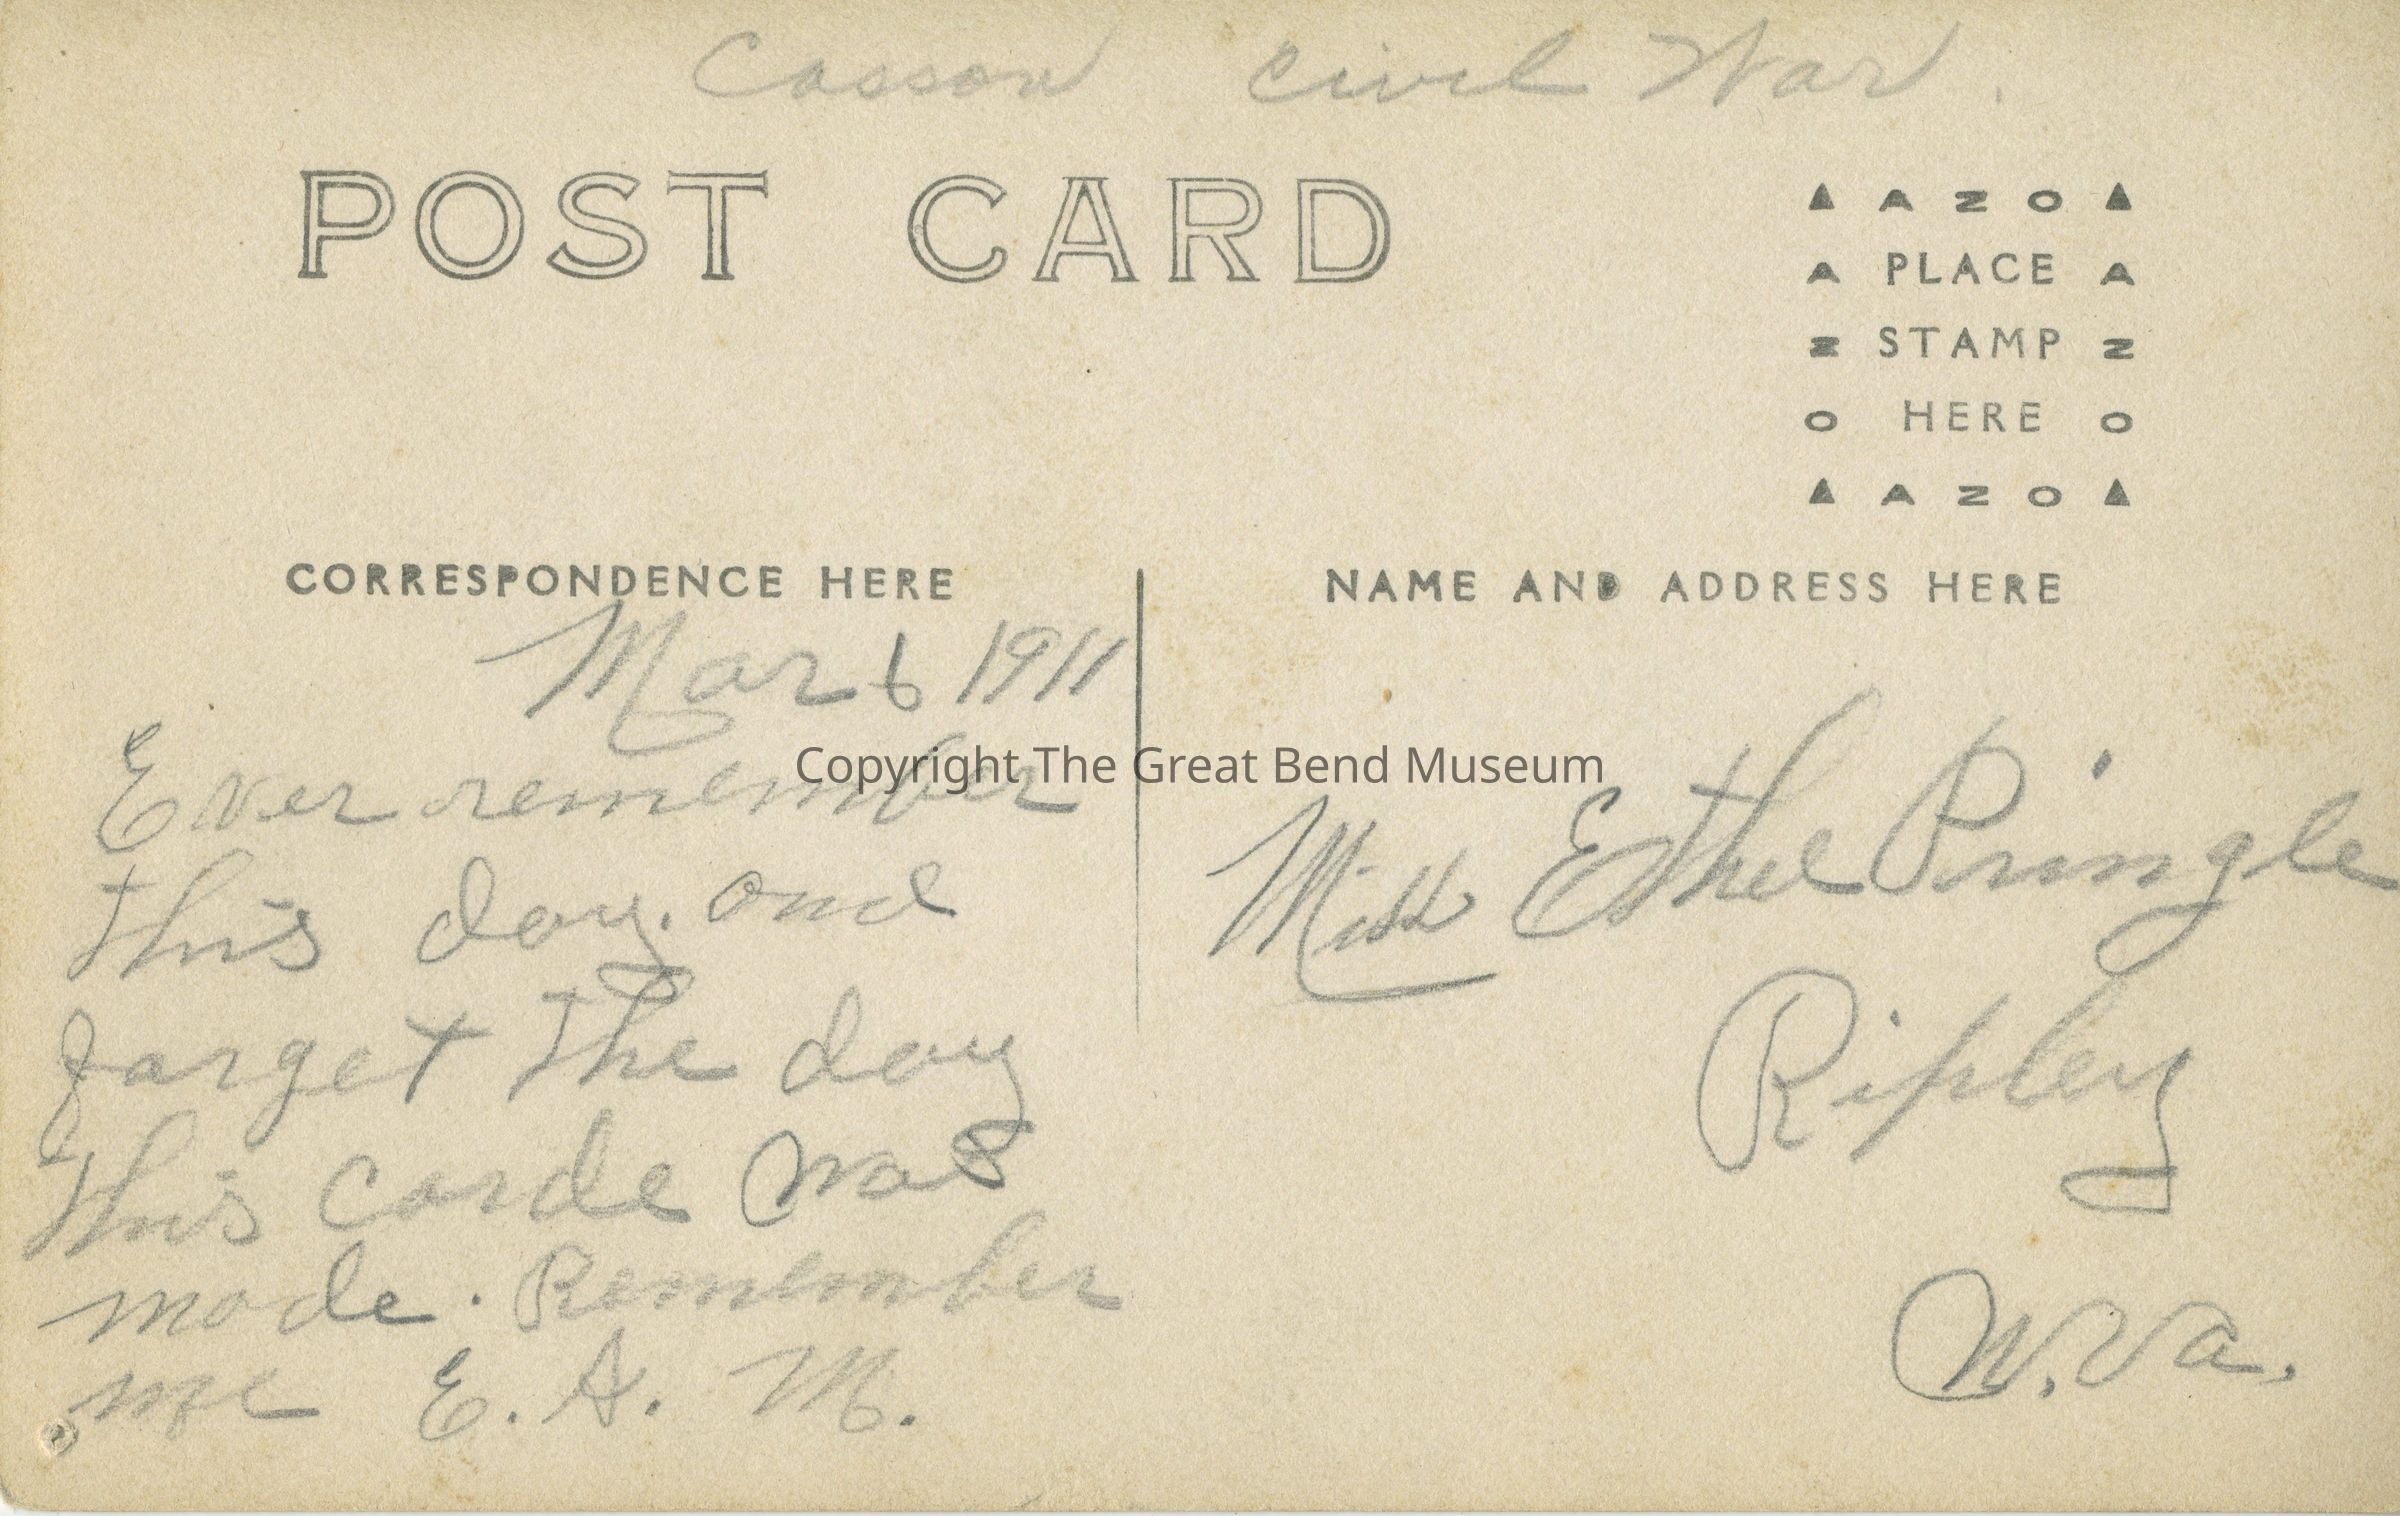 Casson Civil War.
POST CARD
▲ A Z O ▲
A PLACE A
Z STAMP Z
O HERE O
▲ A Z O ▲
CORRESPONDENCE HERE
Mar 6 1911
Ever remember
this day. and
forget the day
this carde was
made. Remember
me E. A. M.
NAME AND ADDRESS HERE
Miss Ethel Pringle
Ripley
W. Va.
Copyright The Great Bend Museum